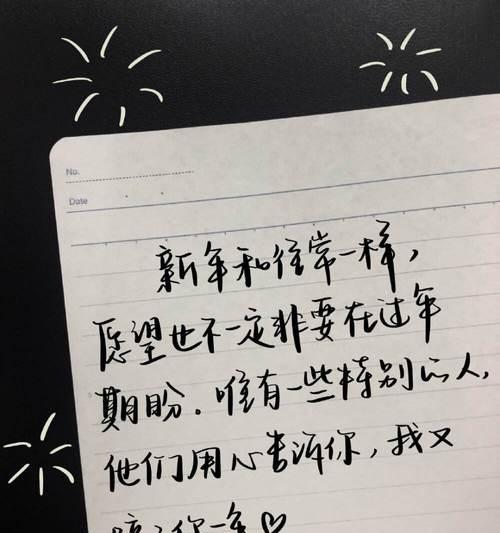 No.
Date
新年和往常一样，
愿望也不一定非要在过年
期盼。唯有一些特别的人，
他们用心告诉你，我又
陪了你一年♡